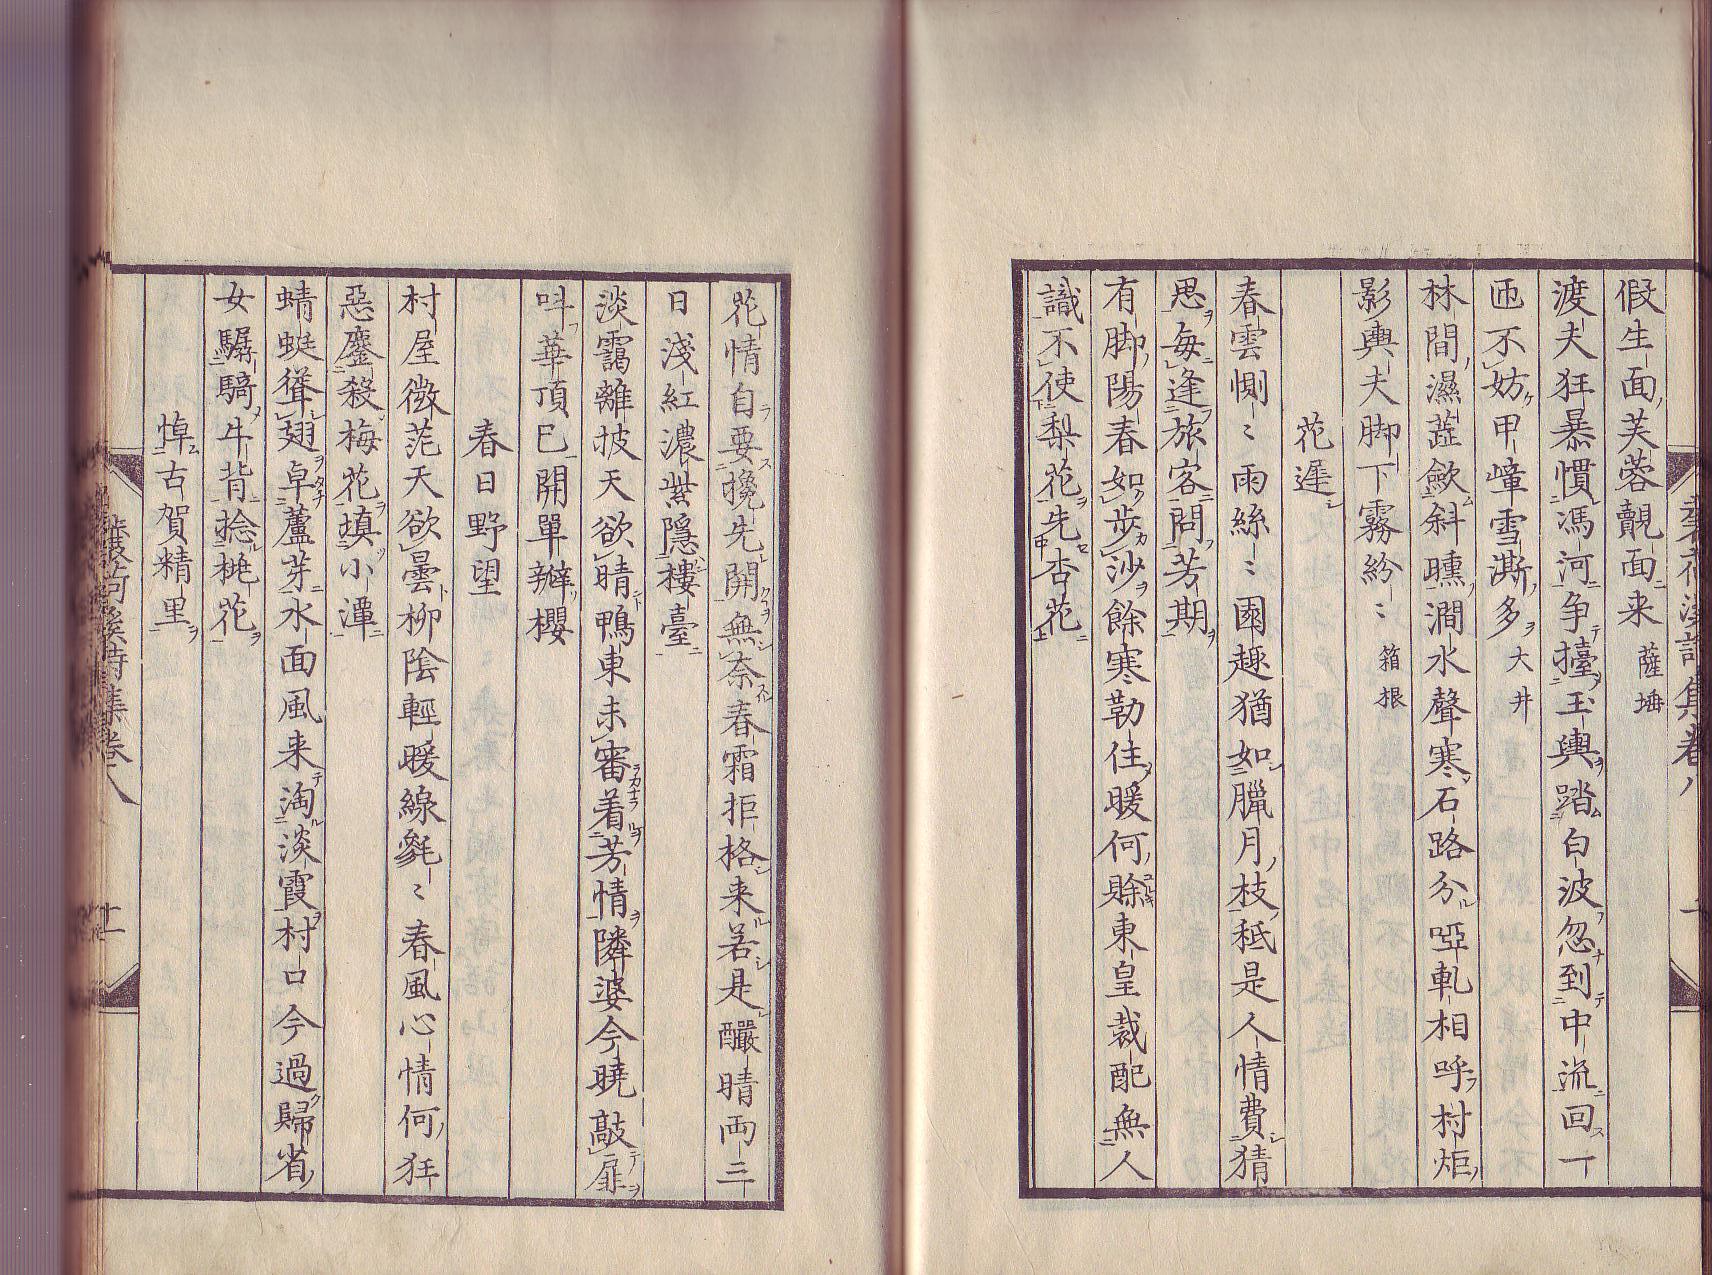 假生面芙蓉覿面来 薩埵
渡夫狂暴慣馮河争擡玉輿踏白波忽到中流回一
匝不妨甲嶂雪澌多 大井
林間濕蘂斜曛澗水聲寒石路分啞軋相呼村炬
影輿夫脚下霧紛〻 箱根
花遲
春雲惻〻雨絲〻園趣猶如臘月枝秪是人情費猜
思毎逢旅客問芳期
有脚陽春如歩沙餘寒勒住暖何賖東皇裁配無人
識不使梨花先杏花
花情自要挽先開無奈春霜拒格来若是釅晴両三
日淺紅濃紫隠樓臺
淡靄離披天欲晴鴨東未審着芳情隣婆今曉敲扉
叫華頂已開單瓣櫻
春日野望
村屋微茫天欲曇柳陰輕暖線毿〻春風心情何狂
惡塵殺梅花填小潭
蜻蜓聳翅卓蘆芽水面風来淘淡霞村口今過歸省
女驏騎牛背捻桃花
悼古賀精里
詩集巻八